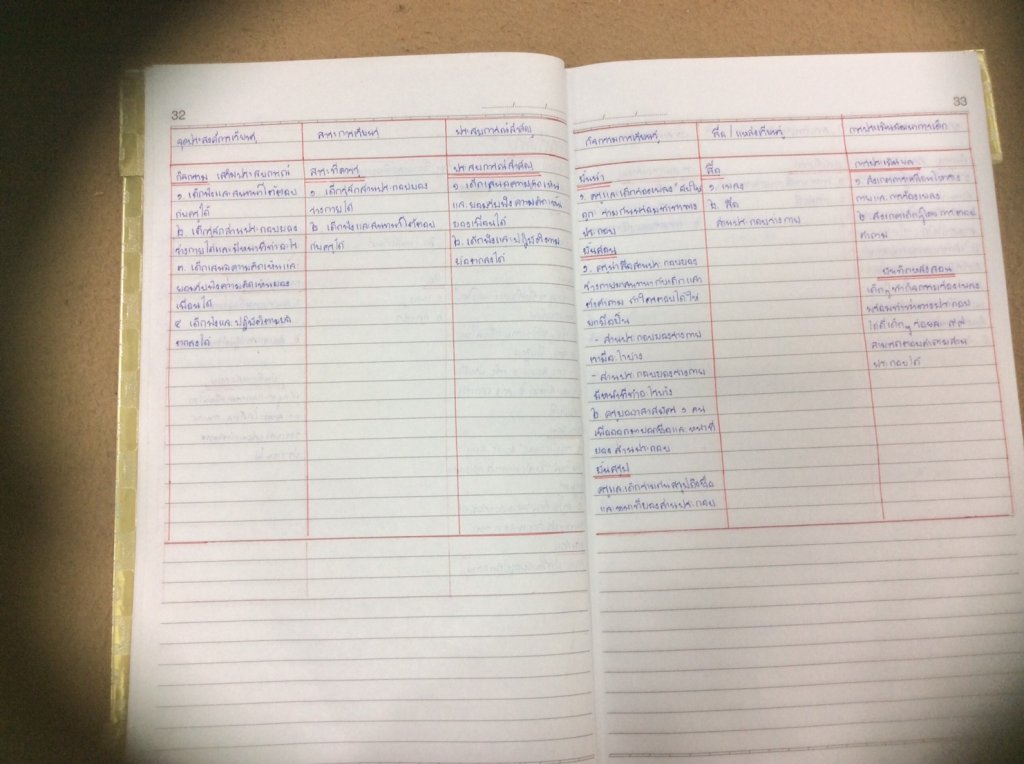 32
จุดประสงค์การเรียนรู้
สาระการเรียนรู้
ประสบการณ์สำคัญ
กิจกรรม เสริมประสบการณ์
๑. เด็กฟังและสนทนาโต้ตอบ
กับครูได้
๒. เด็กรู้จักส่วนประกอบของ
ร่างกายได้และมีหน้าที่ทำอะไร
๓. เด็กเสนอความคิดเห็นและ
ยอมรับฟังความคิดเห็นของ
เพื่อนได้
๔ เด็กฟังและปฏิบัติตามข้อ
ตกลงได้
สาระที่ควรรู้
๑. เด็กรู้จักส่วนประกอบของ
ร่างกายได้
๒ เด็กฟังและสนทนาโต้ตอบ
กับครูได้
ประสบการณ์สำคัญ
๑. เด็กเสนอความคิดเห็น
และยอมรับฟังความคิดเห็น
ของเพื่อนได้
๒. เด็กฟังและปฏิบัติตาม
ข้อตกลงได้
33
กิจกรรมการเรียนรู้
สื่อ / แหล่งเรียนรู้
การประเมินพัฒนาการเด็ก
ขั้นนำ
๑. ครูและเด็กร้องเพลง
ลูก ร่วมกันพร้อมทำท่าทาง
ประกอบ
ขั้นสอน
๑. ครูนำสื่อส่วนประกอบของ
ร่างกายมาสนทนากับเด็กแล้ว
ตั้งคำถาม ถ้าใครตอบได้ให้
ยกมือขึ้น
- ส่วนประกอบของร่างกาย
เรามีอะไรบ้าง
- ส่วนประกอบของร่างกาย
มีหน้าที่ทำอะไรบ้าง
๒ ครูขออาสาสมัคร ๑ คน
เพื่อออกมาบอกชื่อและหน้าที่
ของส่วนประกอบ
ขั้นสรุป
ครูและเด็กร่วมกันสรุปถึงชื่อ
และหน้าที่ของส่วนประกอบ
สื่อ
๑. เพลง
๒. สื่อ
ส่วนประกอบร่างกาย
การประเมินผล
๑. สังเกตการเคลื่อนไหวทาง
กายและการร้องเพลง
๒ สังเกตเด็กๆโดยการตอบ
คำถาม
บันทึกหลังสอน
เด็กๆทำกิจกรรมร้องเพลง
พร้อมทำท่าทางประกอบ
ได้ดี เด็กๆ ร้อยละ ๙๙
สามารถตอบคำถามส่วน
ประกอบได้